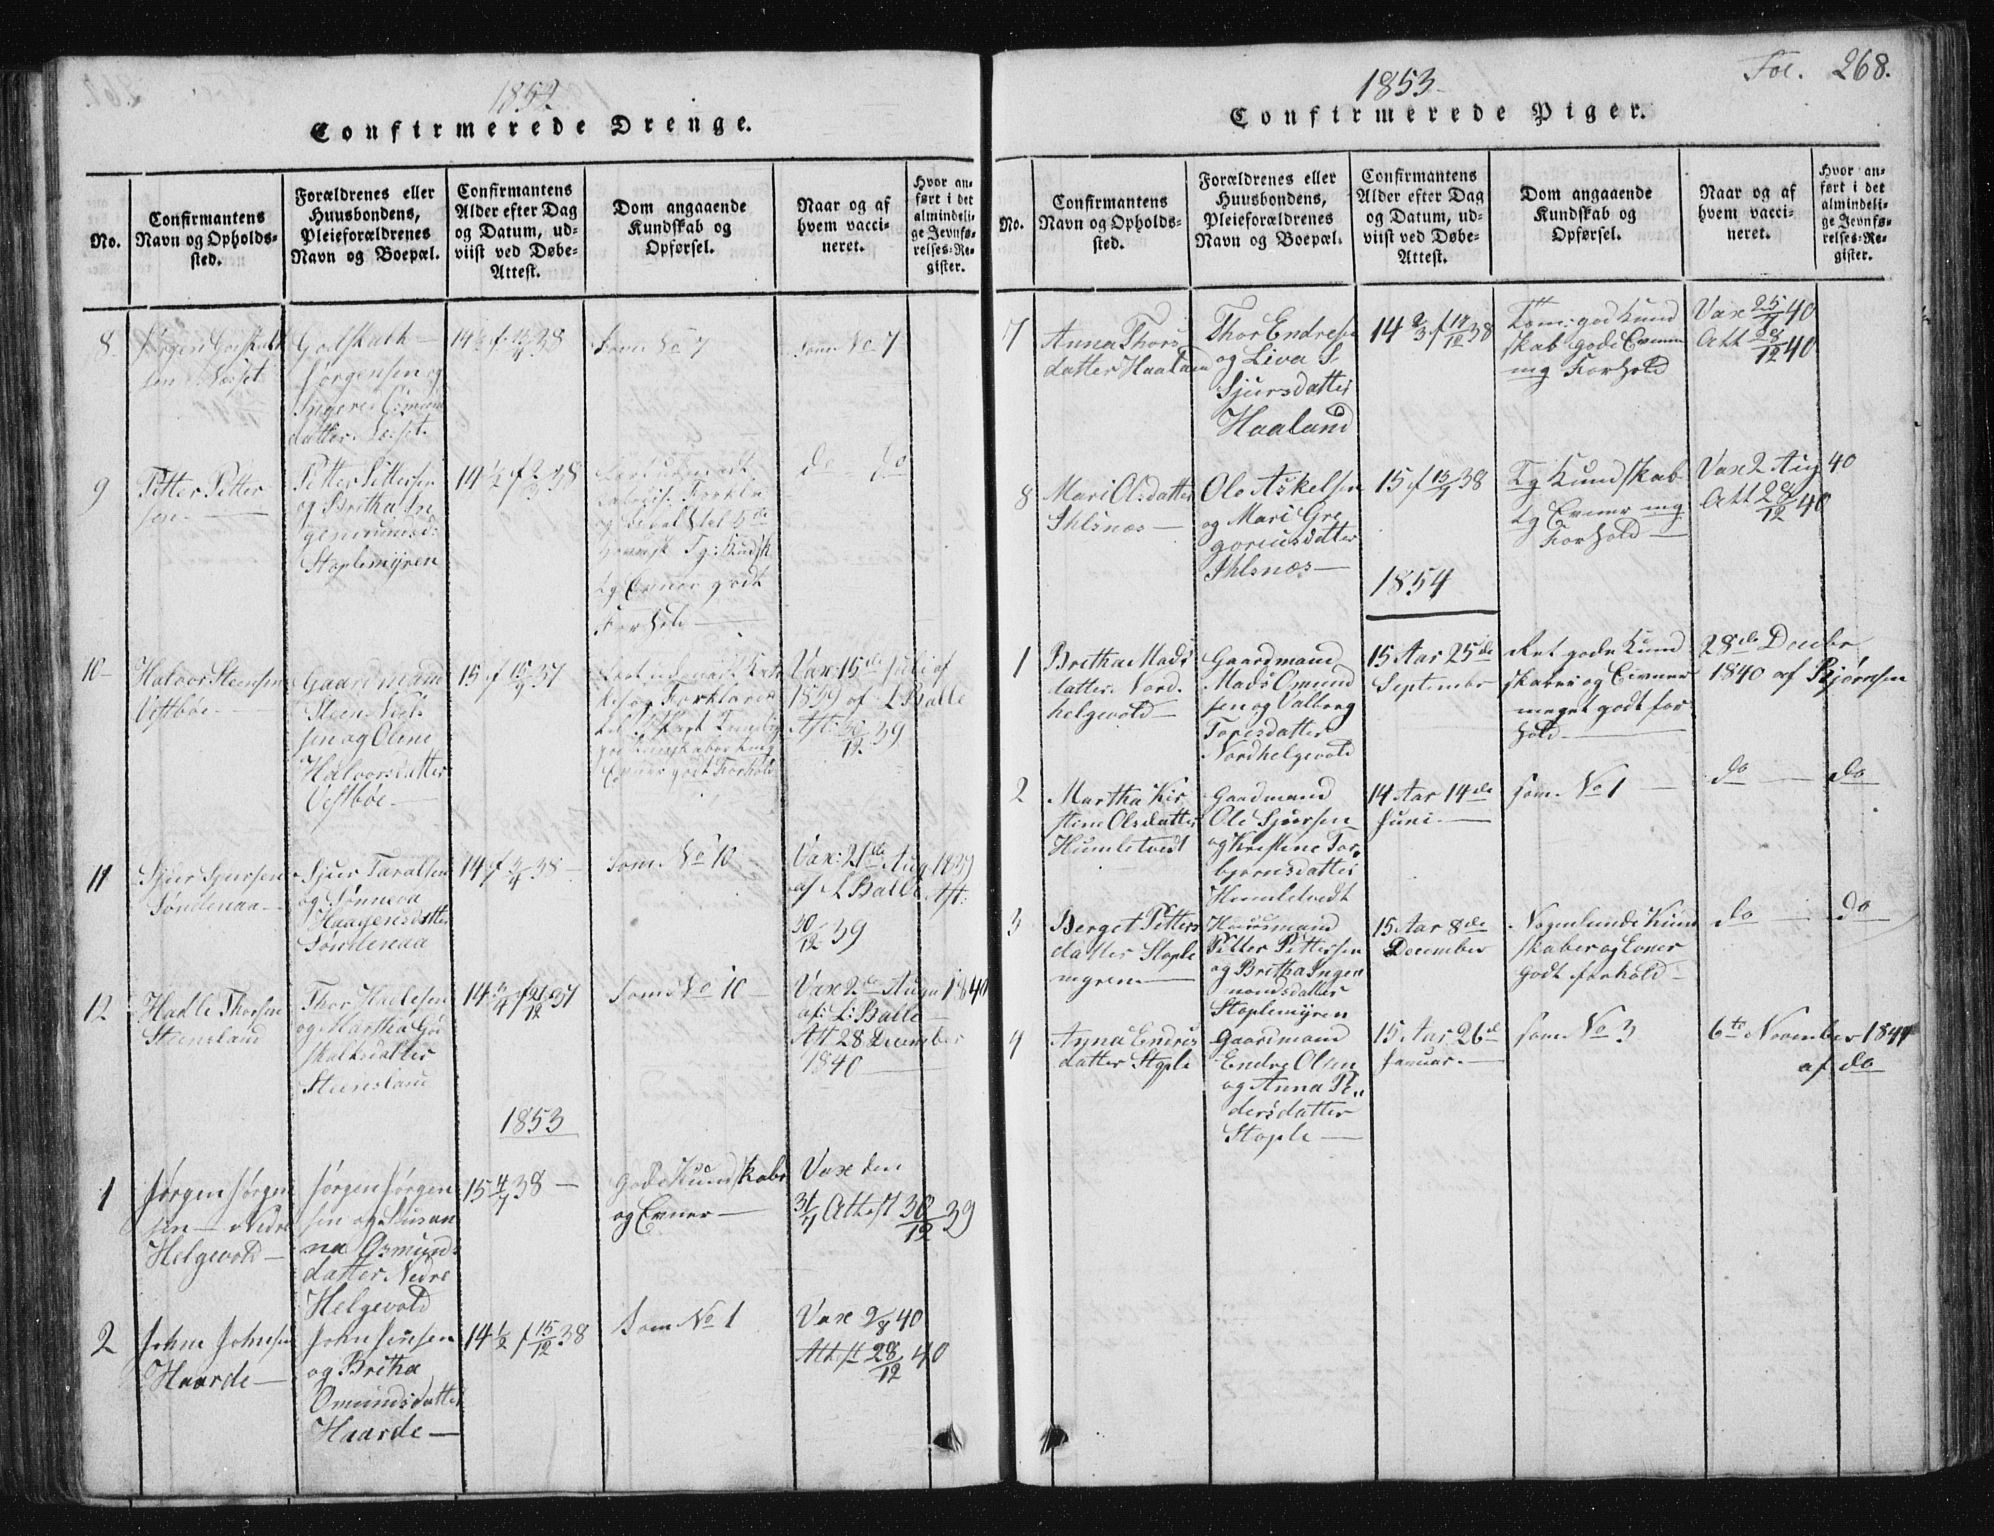 1852
Confirmerede Drenge.
No.
Confirmantens
Navn og Opholds-
sted.
Forældrenes eller
Huusbondens,
Pleieforældrenes
Navn og Boepæl.
Confirmantens
Alder efter Dag
og Datum, ud-
viist ved Døbe-
Attest.
Dom angaaende
Kundskab og
Opførsel.
Naar og af
hvem vacci-
neret.
Hvor an-
ført i det
almindeli-
ge Jevnfø-
relses-Re-
gister.
8.
Jørgen Godskalk
sen
Godskalk
Jørgensen og
datter
Som No 7
Som No 7
9
Pitter Pitter
sen
Pitter Pittersen
og Britha In
gemunds d:
Staplemyren
14 1/2 f 2/3 38
Tg: Kundsk
tg Evner godt
Forhold
do do
10
Halvor Steensen
Vestbøe
Gaardmand
Steen Niel-
sen og Oline
Halvorsdatter
Vestbøe
15 f 15/9 37
Evner godt Forhold
Vax: 15de Juli af
1839 af L Balle
Att: 30/12 39
11
Sjur Sjursen
Søndenaa
Sjur Taralsen
og Sønneva
Haagensdatter
Søndenaa
14 f 3/4 38
Som No 10
Vax: 21de Aug 1839
af L Balle Att:
30/12 39
12
Hatle Thorsen
Steensland
Thor Hatlesen
og Martha God
skalksdatter
Steensland
14 3/4 f 21/12 37
Som No 10
Vax 2de Augu 1840
af: L: Balle
Att 28 December
1840
1853
1
Jørgen Jørgen
sen Nedre
Helgevold
Jørgen Jørgen
sen og Susan
na Osmunds
datter Nedre
Helgevold
15 4/7 38
gode Kundskaber
og Evner
Vax den
31/7 Attest 30/12 39
2
John Johnsen
Haarde
John Jensen
og Britha
Omundsdatter
Haarde
14 1/2 f 15/12 38
Som No 1
Vax 2/8 40
Attest 28/12 40
1853
Fol. 268.
Confirmerede Piger.
No.
Confirmantens
Navn og Opholds-
sted.
Forældrenes eller
Huusbondens,
Pleieforældrenes
Navn og Boepæl.
Confirmantens
Alder efter Dag
og Datum, ud-
viist ved Døbe-
Attest.
Dom angaaende
Kundskab og
Opførsel.
Naar og af
hvem vacci-
neret.
Hvor an-
ført i det
almindeli-
ge Jevnfø-
relses-Re-
gister.
7
Anna Thors
datter Haaland
Thor Endresen
og Liva S
Sjursdatter
Haaland
14 2/3 f 14/12 38
god Kund
skab gode Evner
mg Forhold
Vax 25/9 40
Att 28/12 40
8
Mari Olsdatter
Ihlsnæs
Ole Askelsen
og Mari Gre
goriusdatter
Ihlsnæs
15 f 13/4 38
Tg Kundskab
tg Evner mg
Forhold
Vax 2 Aug 40
Att 28/12 40
1854
1
Britha Mads
datter Nord
helgevold
Gaardmand
Mads Osmund
sen og Valborg
Torisdatter
Nordhelgevold
15 Aar 25de
September
Ret gode Kund
skaber og Evner
meget godt for
hold
28de Decbr
1840 af Bjørnsen
2
Martha Kir
stine Olsdatter
Humletvedt
Gaardmand
Ole Sjursen
og Kristine Tor
bjørnsdatter
Humletvedt
14 Aar 14de
Juni
som No 1
do
do
3
Berget Pitters
datter Staple
myren
Huusmand
Pitter Pittersen
og Britha Inge
mondsdatter
Staplemyren
15 Aar 8de
December
Nogenlunde Kund
skaber og Evner
godt forhold
do
do
4
Anna Endres
datter Staple
Gaardmand
Endre Olsen
og Anna Pe
dersdatter
Staple
15 Aar 26d
Januar
som No 3
6te November 1841
af do